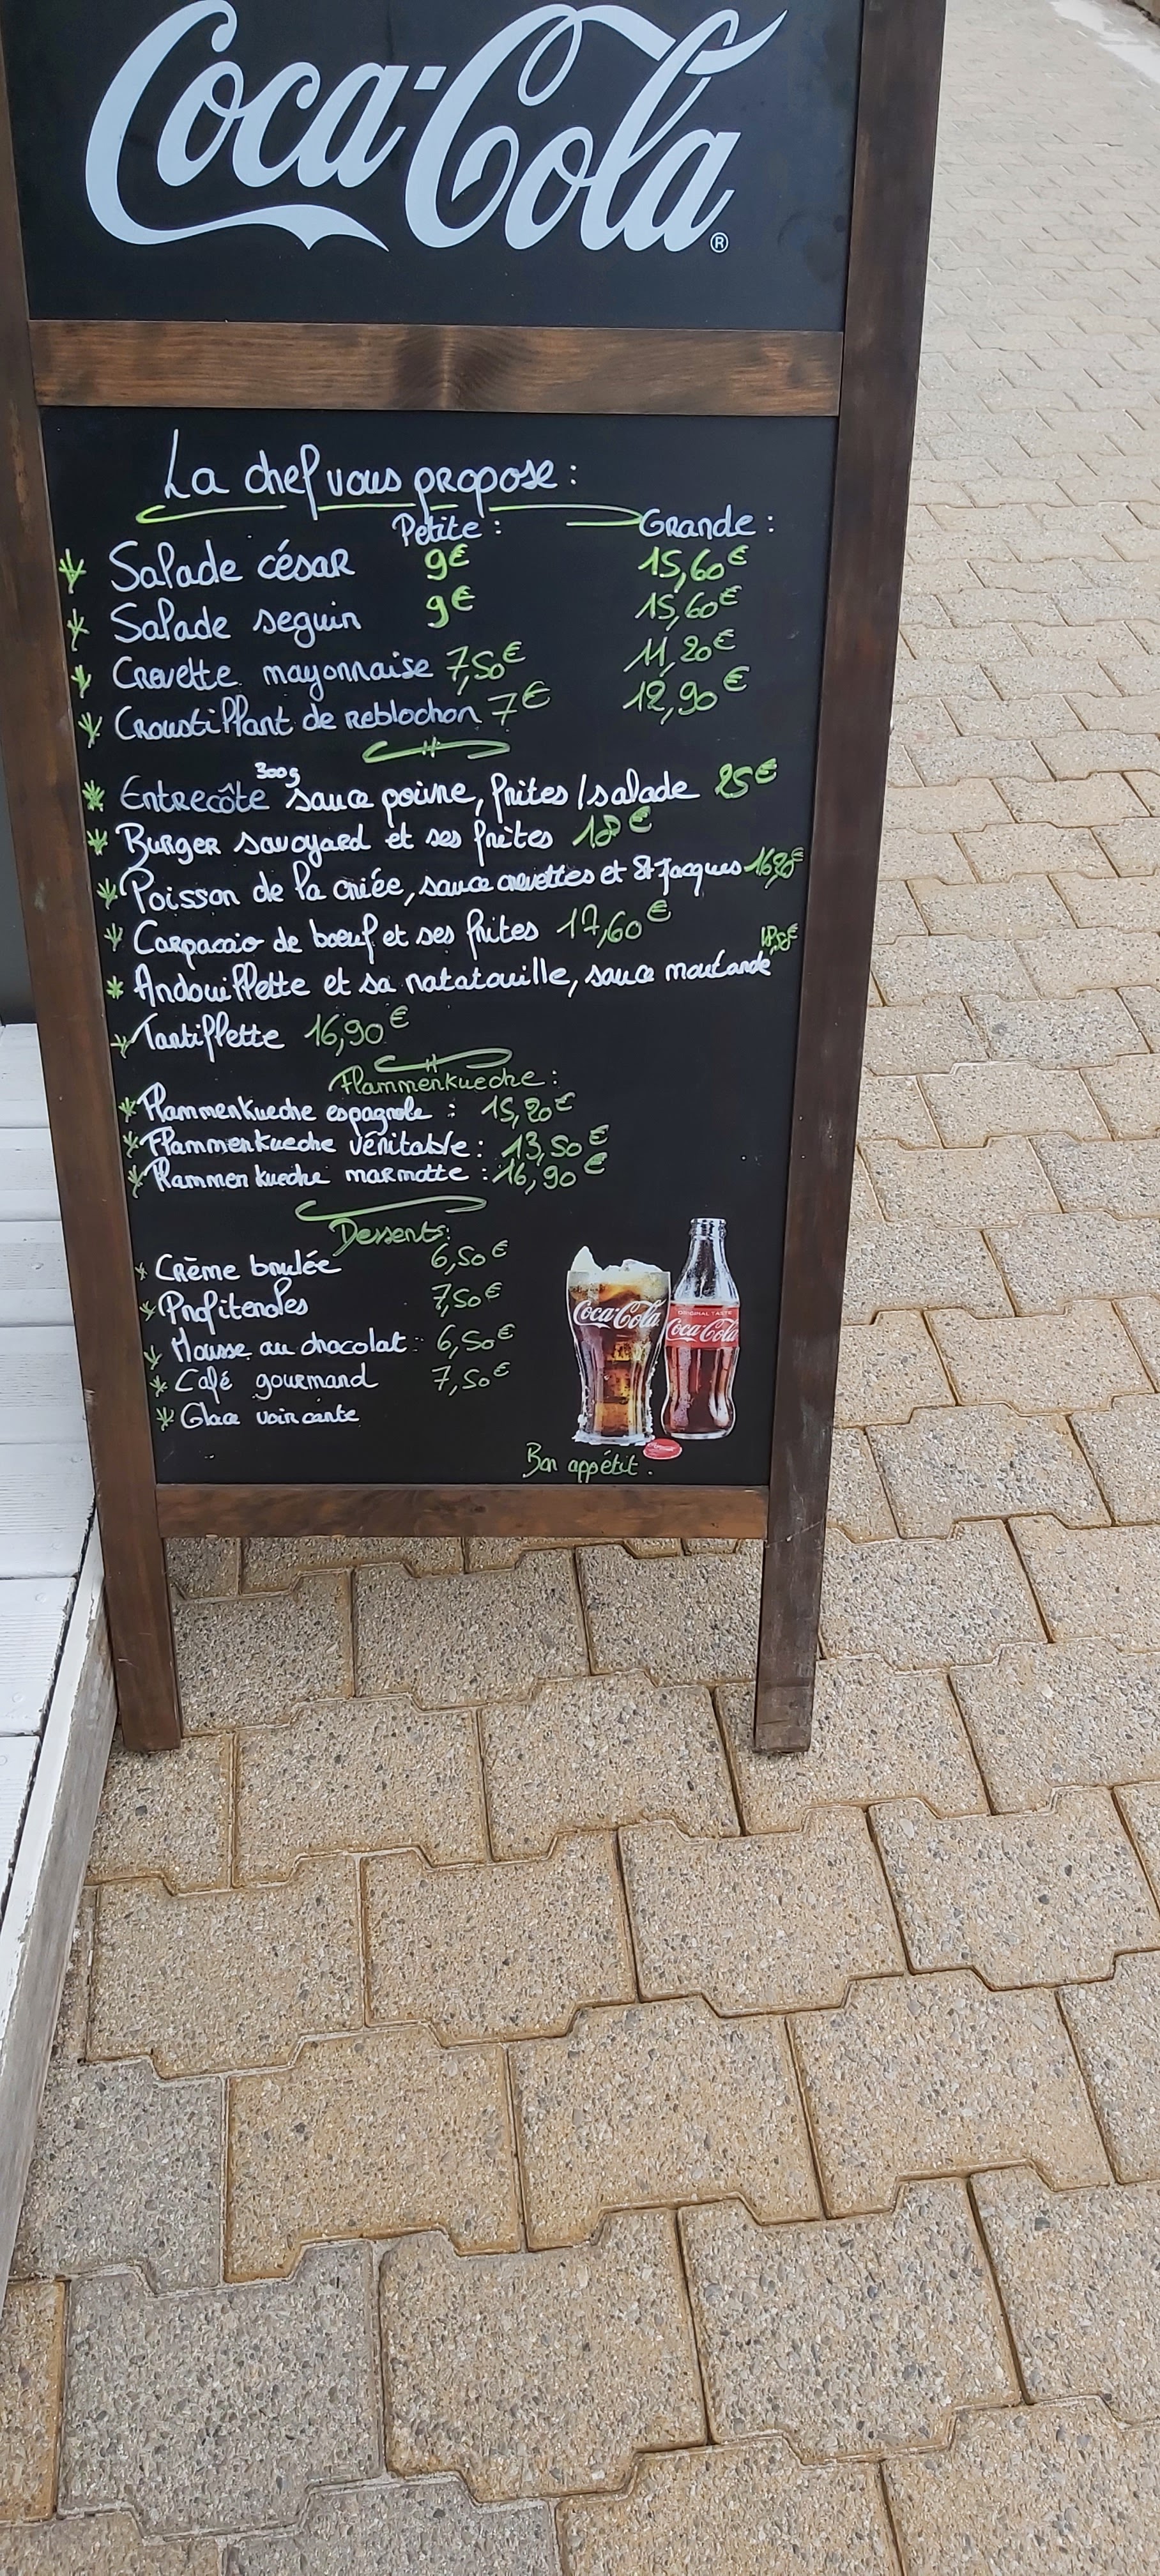 Coca-Cola®
La chef vous propose :
Petite : Grande :
Salade césar 9€ 15,60€
Salade seguin 9€ 15,60€
Crevette mayonnaise 7,50€ 11,20€
Croustillant de reblochon 7€ 12,90€
300g
Entrecôte sauce poivre, frites / salade 25€
Burger savoyard et ses frites 18€
Poisson de la criée, sauce crevettes et St Jacques
Carpaccio de boeuf et ses frites 17,60€
Andouillette et sa ratatouille, sauce moutarde
Tartiflette 16,90€
Flammenkueche :
Flammenkueche espagnole : 15,20€
Flammenkueche véritable : 13,50€
Flammenkueche marmotte : 16,90€
Desserts :
Crème brulée 6,50€
Profiteroles 7,50€
Mousse au chocolat : 6,50€
Café gourmand 7,50€
Glace voir carte
Coca-Cola
ORIGINAL TASTE
Coca-Cola
Bon appétit.